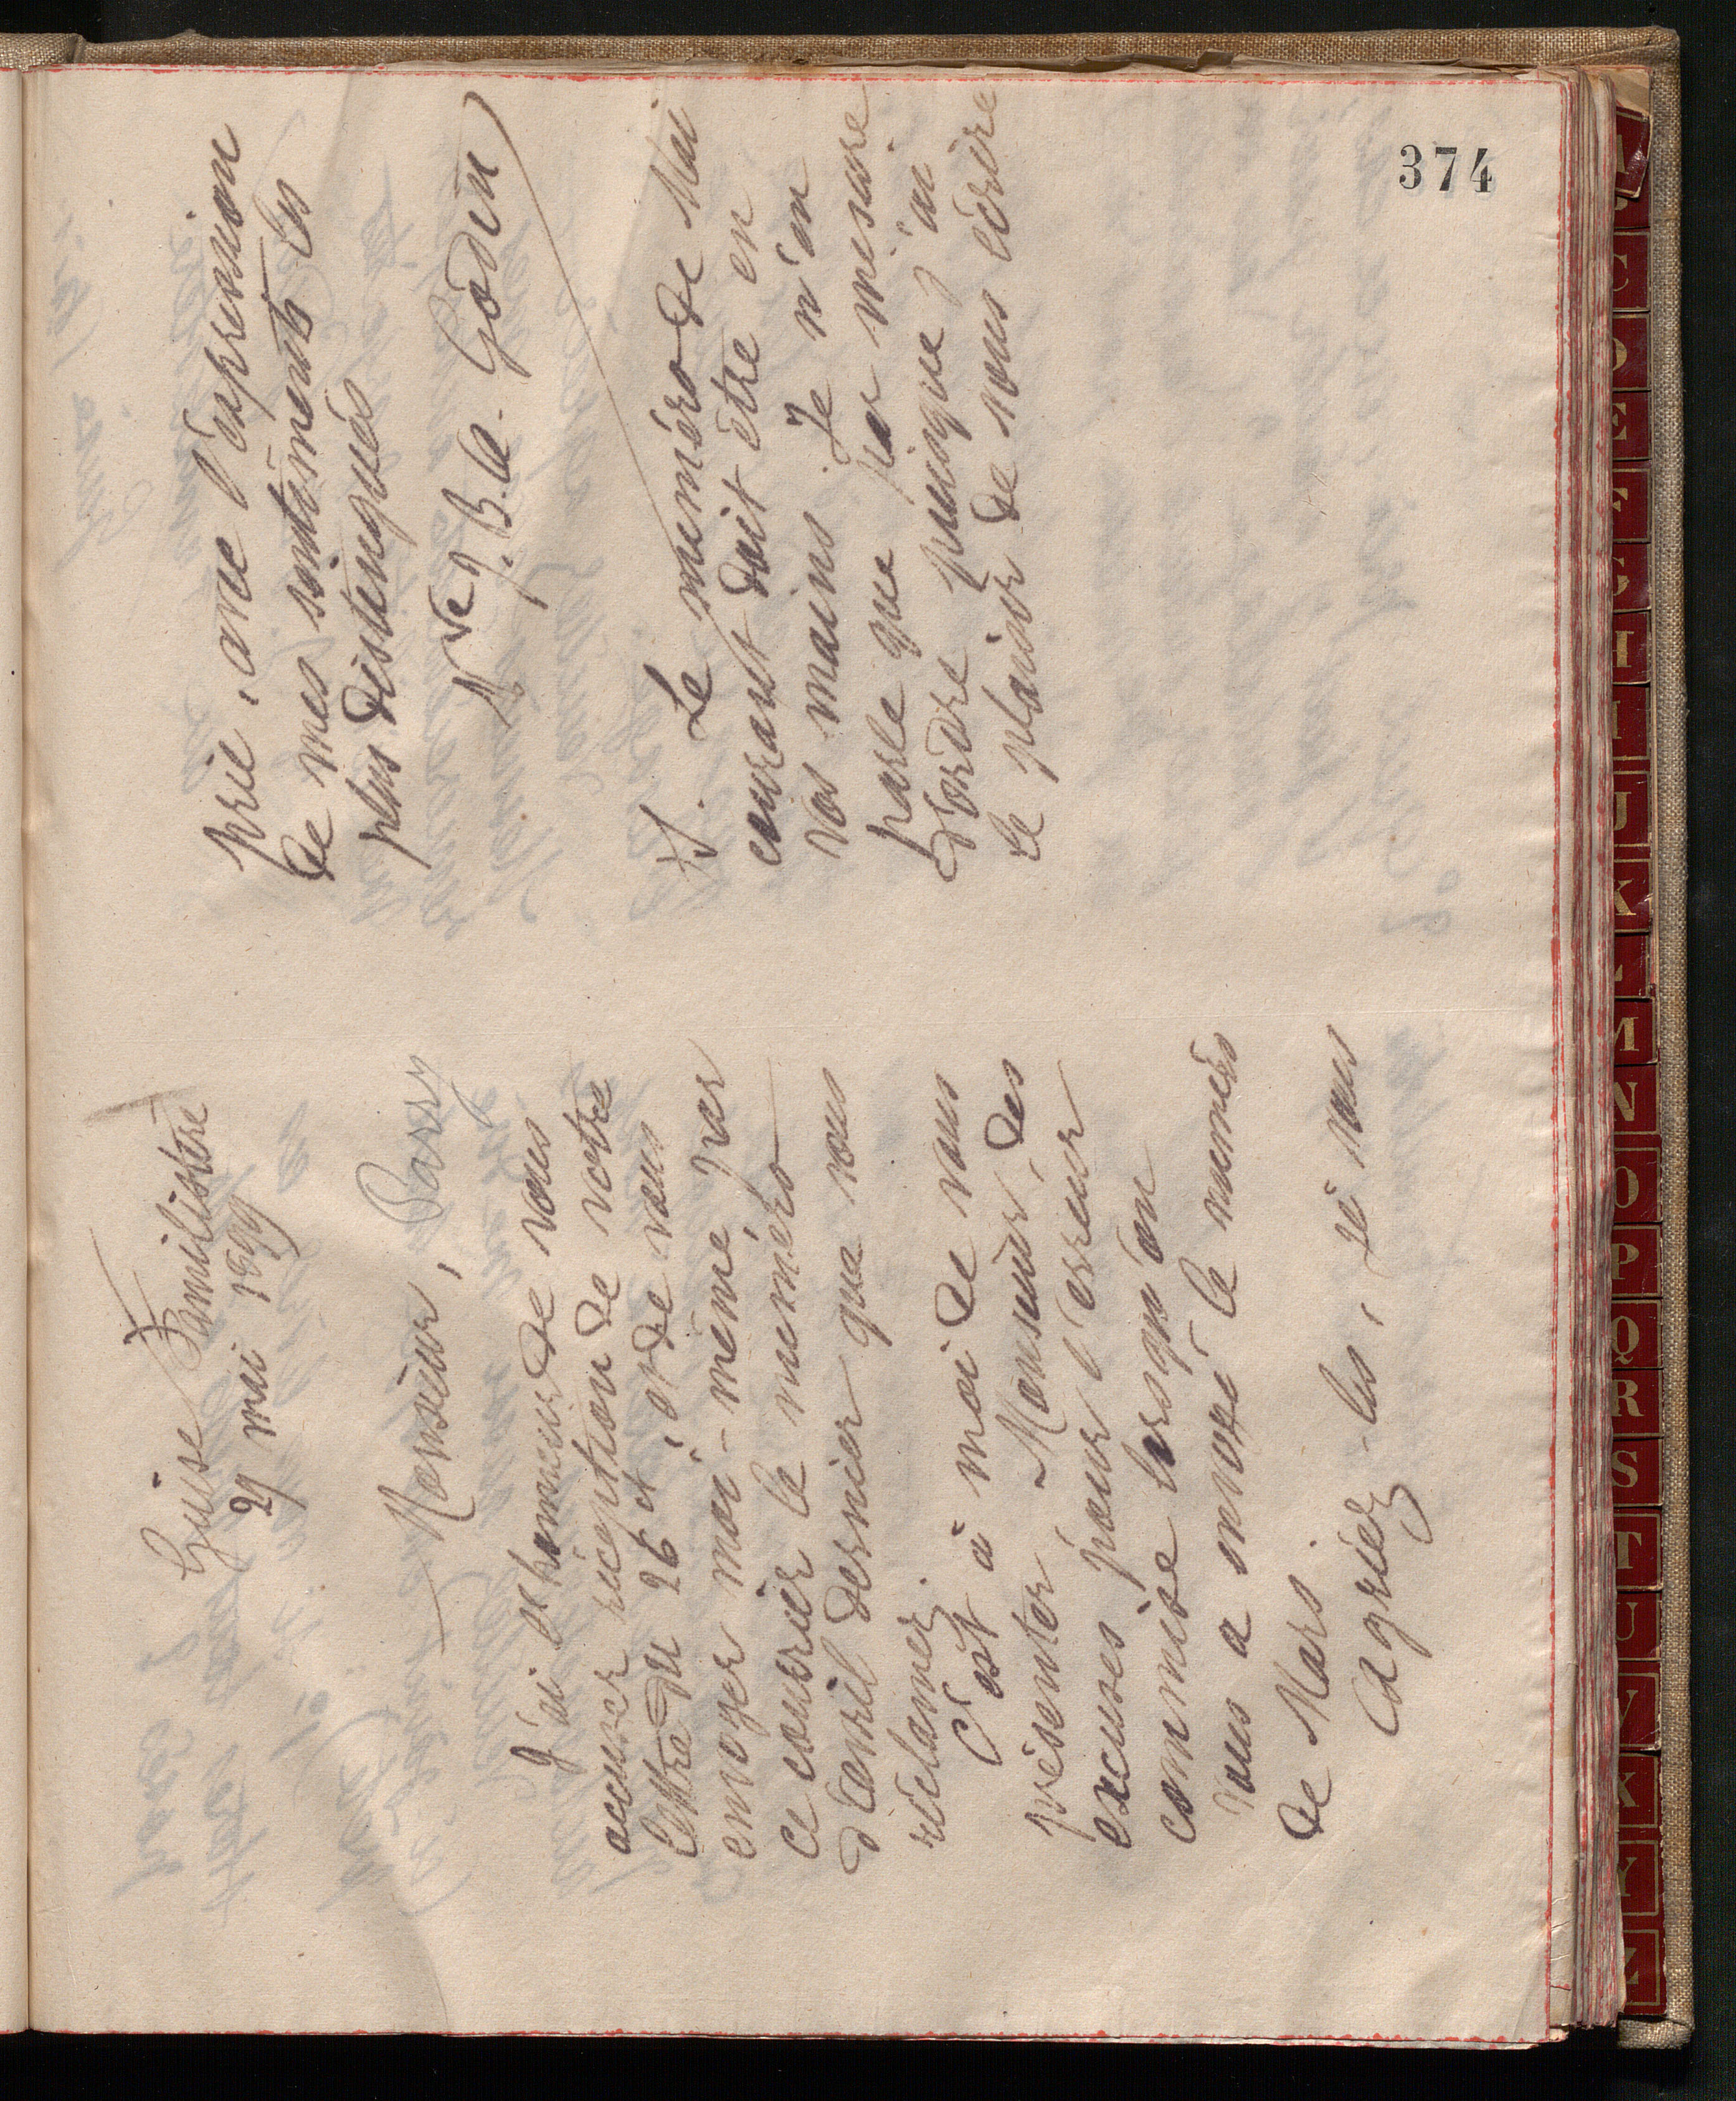 374
Guise Familistère
29 mai 1899
Monsieur, Barry
J'ai l'honneur de vous
accuser réception de votre
lettre du 26 ct et de vous
envoyer moi-même, par
ce courrier le numéro
d'avril dernier que vous
réclamez.
C'est à moi de vous
présenter, Monsieur, des
excuses pour l'erreur
commise lorsqu'on
vous a envoyé le numéro
de Mars.
Agréez-les, je vous
prie, avec l'expression
de mes sentiments les
plus distingués
Vve J. B. A. Godin
P.S. Le numéro de Mai
courant doit être en
vos mains. Je n'en
parle que par mesure
d'ordre puisque j'ai
le plaisir de vous écrire